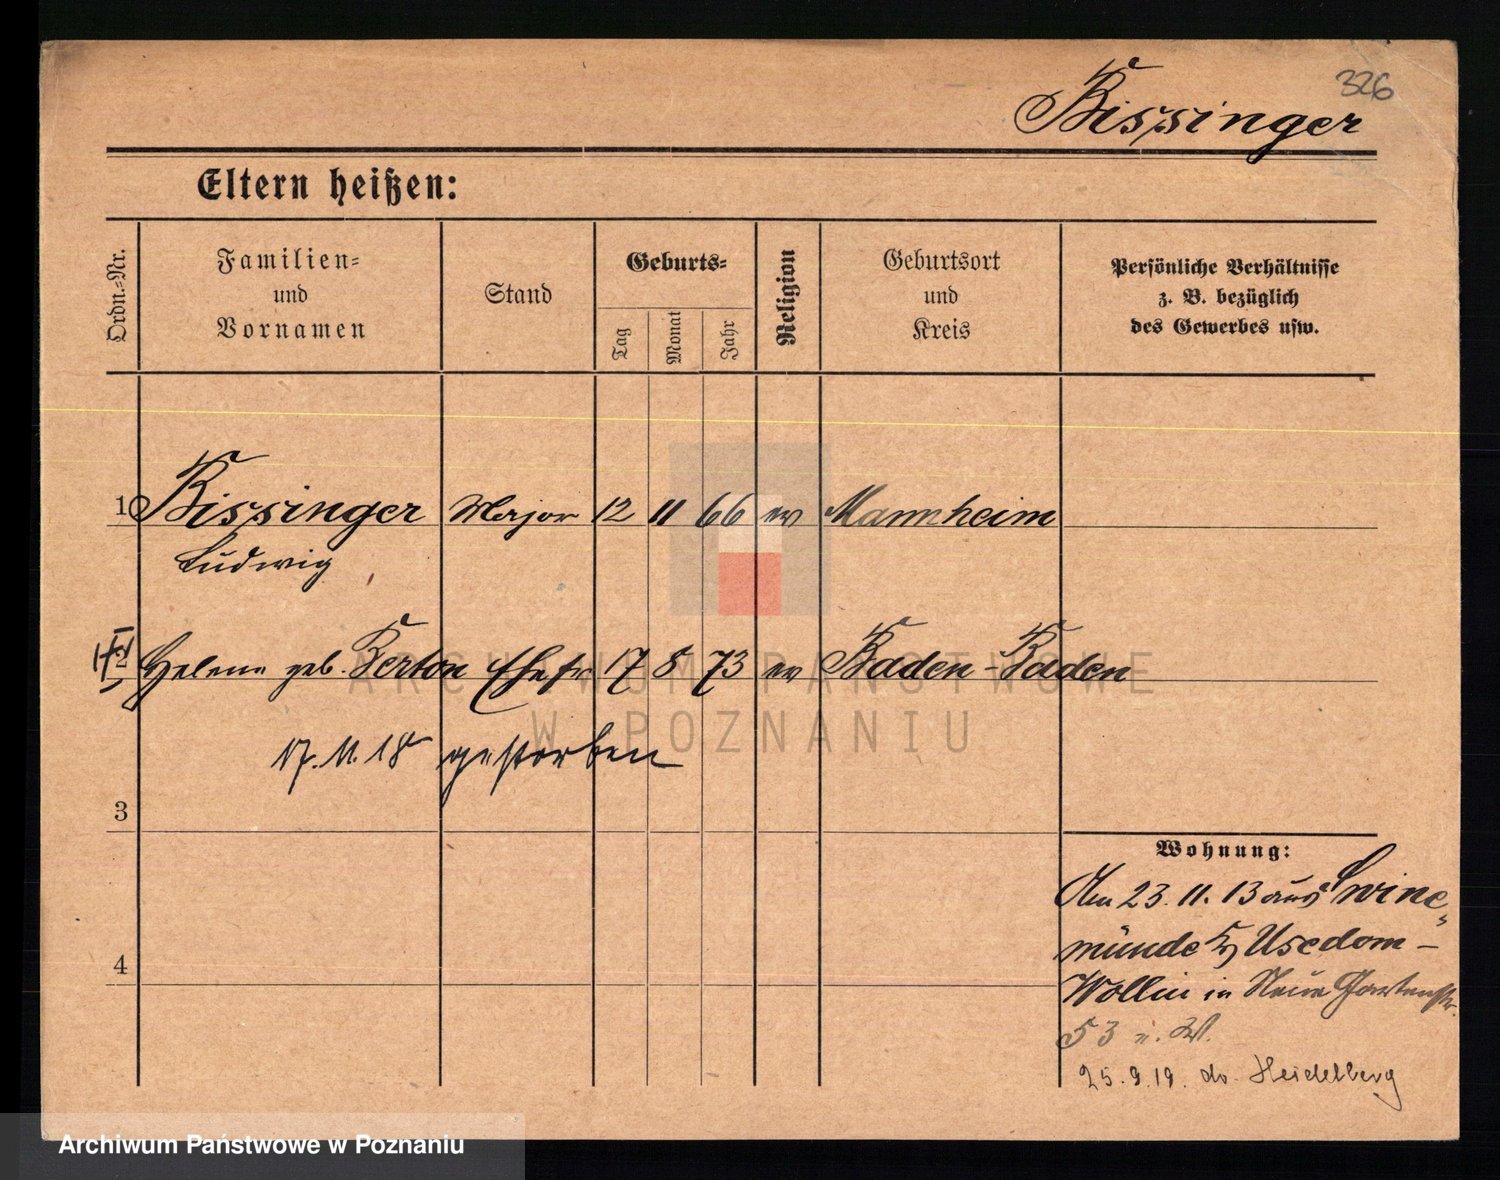 326
Bissinger
Eltern heißen:
Ordn.-Nr.
Familien-
und
Vornamen
Stand
Geburts-
Tag
Monat
Jahr
Religion
Geburtsort
und
Kreis
Persönliche Verhältnisse
z. B. bezüglich
des Gewerbes usw.
1 Bissinger Major 12 11 66 ev Mannheim
Ludwig
2 Helene geb. Berton Ehefr 17 8 73 ev Baden-Baden
17.11.18 gestorben
3
4
Wohnung:
Am 23.11.13 aus Swine-
münde Usedom-
Wollin in Neue Gartenstr.
53 u. W.
25.9.19. Heidelberg
ARCHIWUM PAŃSTWOWE
W POZNANIU
Archiwum Państwowe w Poznaniu